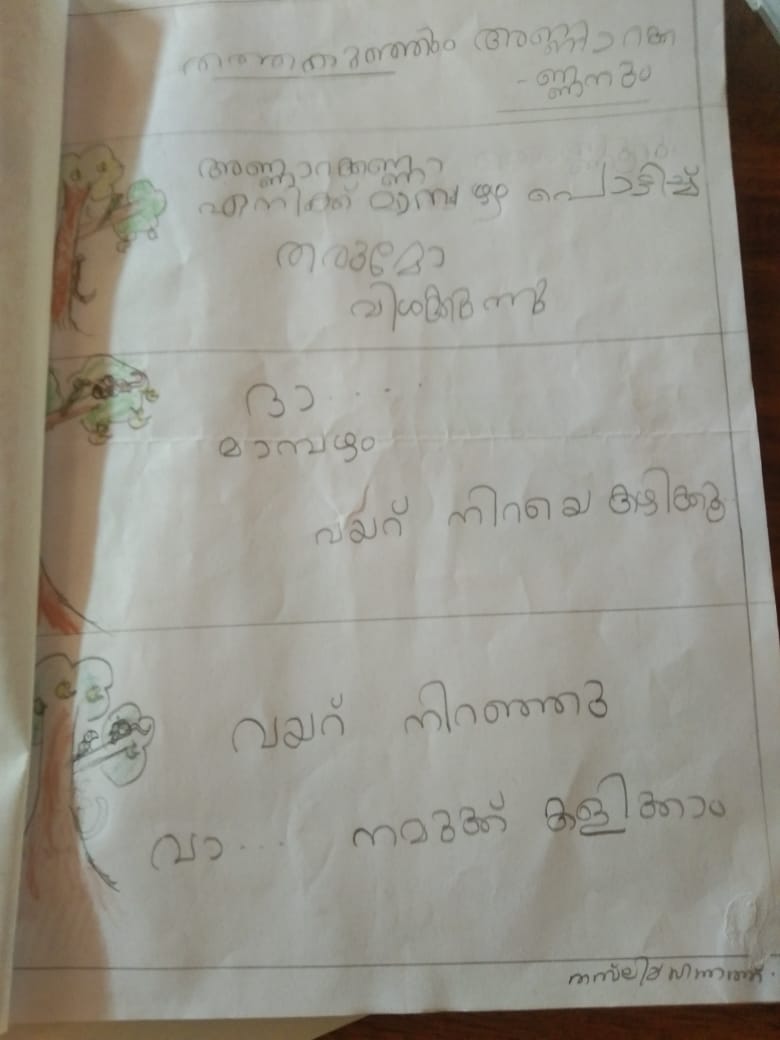 തത്തകുഞ്ഞും അണ്ണാറക്ക
-ണ്ണനും
അണ്ണാറക്കണ്ണാ
എനിക്ക് മാമ്പഴം പൊട്ടിച്ച്
തരുമോ
വിശക്കുന്നു
ദാ.....
മാമ്പഴം
വയറ് നിറയെ കഴിക്കൂ
വയറ് നിറഞ്ഞു
വാ... നമുക്ക് കളിക്കാം